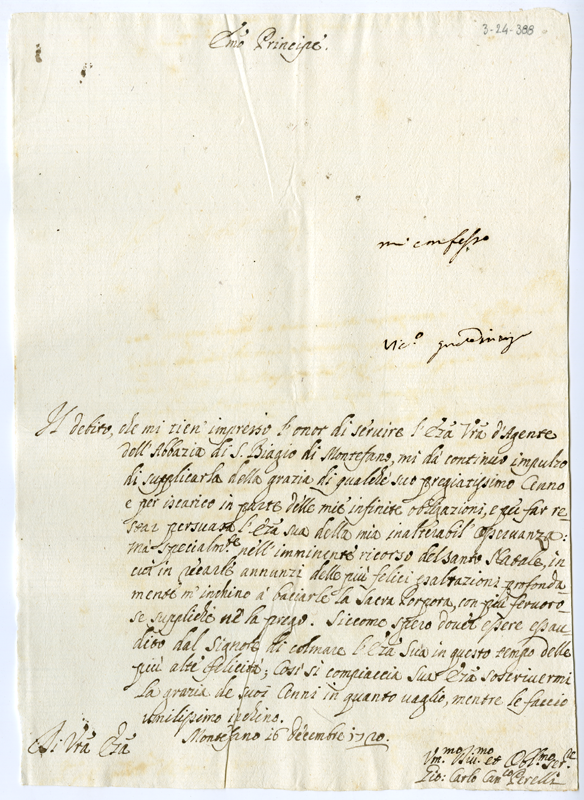 3-24-388
Emo Principe.
mi confesso
Vic.o
Il debito, che mi tien' impresso l'onor di servire l'Eza Vra d'Agente
dell'Abbazia di S. Biagio di Montefano, mi dà continuo impulso
di supplicarla della grazia di qualche suo pregiatissimo Cenno
e per iscarico in parte delle mie infinite obligazioni, e più far re-
star persuasa l'Eza sua della mia inalterabil' Osservanza:
mà specialmte nell'imminente ricorso del Santo Natale, in
cui in recarle annunzi delle più felici esaltazioni profonda-
mente m'inchino à baciarle la Sacra Porpora, con più fervoro-
se suppliche nè la prego. Siccome spero dover essere esau-
dito dal Signore di colmare l'Eza Sua in questo tempo delle
più alte felicità; Così si compiaccia Sua Eza soscrivermi
la grazia de suoi Cenni in quanto vaglio, mentre le faccio
umilissimo inchino.
Di Vra Eza Montefano 16 decembre 1720.
Um.mo Div.mo et Obl.mo Ser.re
Gio: Carlo Can.co Perelli